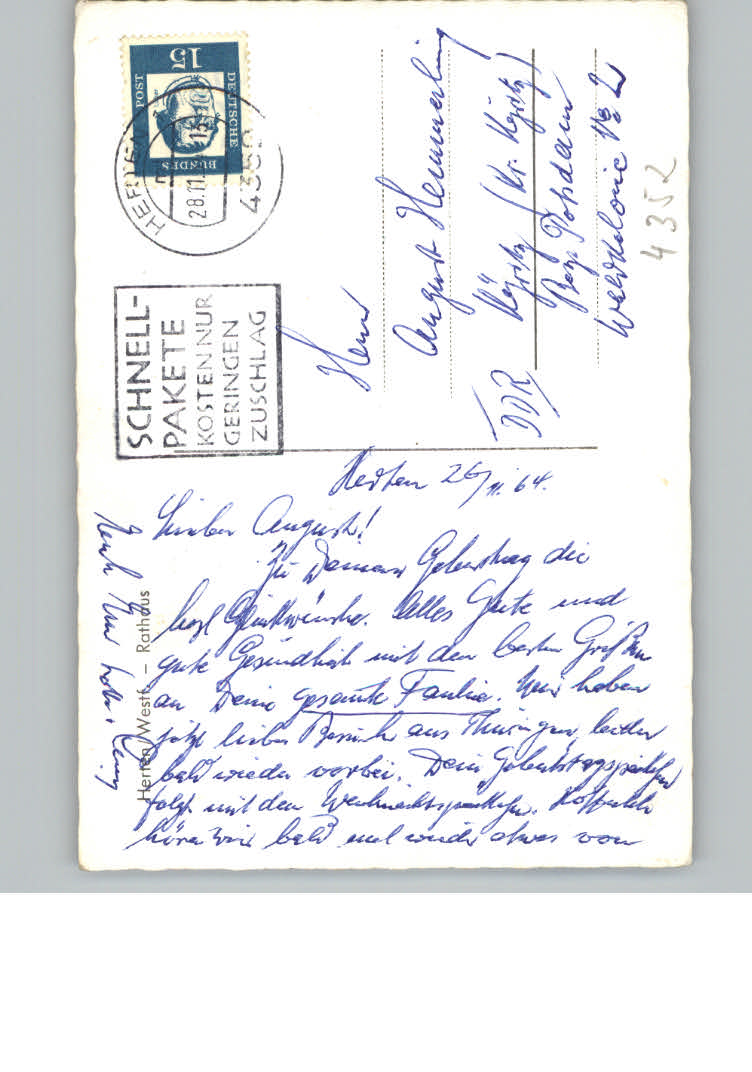 DEUTSCHE
BUNDES
POST
15
HERTEN
28.11.
4352
SCHNELL-
PAKETE
KOSTEN NUR
GERINGEN
ZUSCHLAG
Herrn
August Hemmerling
Kyritz (Kr. Kyritz)
Bez. Potsdam
Waldkolonie No 2
DDR
4352
Herten 26/11.64.
Lieber August!
Zu Deinem Geburtstag die
herzl Glückwünsche. Alles Gute und
gute Gesundheit mit den besten Grüßen
an Deine gesamte Familie. Wir haben
jetzt lieben Besuch aus Thüringen, leider
bald wieder vorbei. Dein Geburtstagspäckchen
folgt mit dem Weihnachtspäckchen. Hoffentlich
hören wir bald mal wieder etwas von
Euch
Herten Westf. – Rathaus